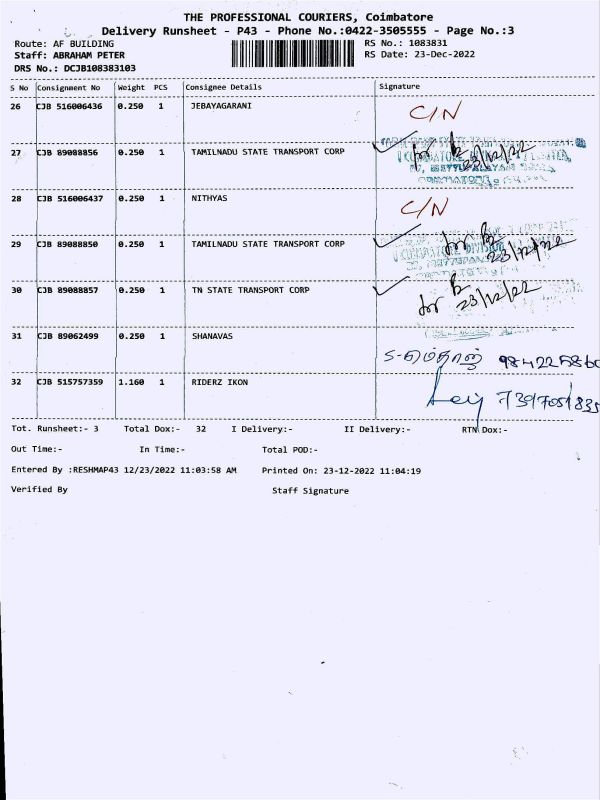 THE PROFESSIONAL COURIERS, Coimbatore
Delivery Runsheet - P43 - Phone No.:0422-3505555 - Page No.:3
Route: AF BUILDING RS No.: 1083831
Staff: ABRAHAM PETER RS Date: 23-Dec-2022
DRS No.: DCJB108383103
S No Consignment No Weight PCS Consignee Details Signature
26 CJB 516006436 0.250 1 JEBAYAGARANI C/N
27 CJB 89088856 0.250 1 TAMILNADU STATE TRANSPORT CORP for 23/12/22
28 CJB 516006437 0.250 1 NITHYAS C/N
29 CJB 89088850 0.250 1 TAMILNADU STATE TRANSPORT CORP for 23/12/22
30 CJB 89088857 0.250 1 TN STATE TRANSPORT CORP for 23/12/22
31 CJB 89062499 0.250 1 SHANAVAS
32 CJB 515757359 1.160 1 RIDERZ IKON
Tot. Runsheet:- 3 Total Dox:- 32 I Delivery:- II Delivery:- RTN Dox:-
Out Time:- In Time:- Total POD:-
Entered By :RESHMAP43 12/23/2022 11:03:58 AM Printed On: 23-12-2022 11:04:19
Verified By Staff Signature